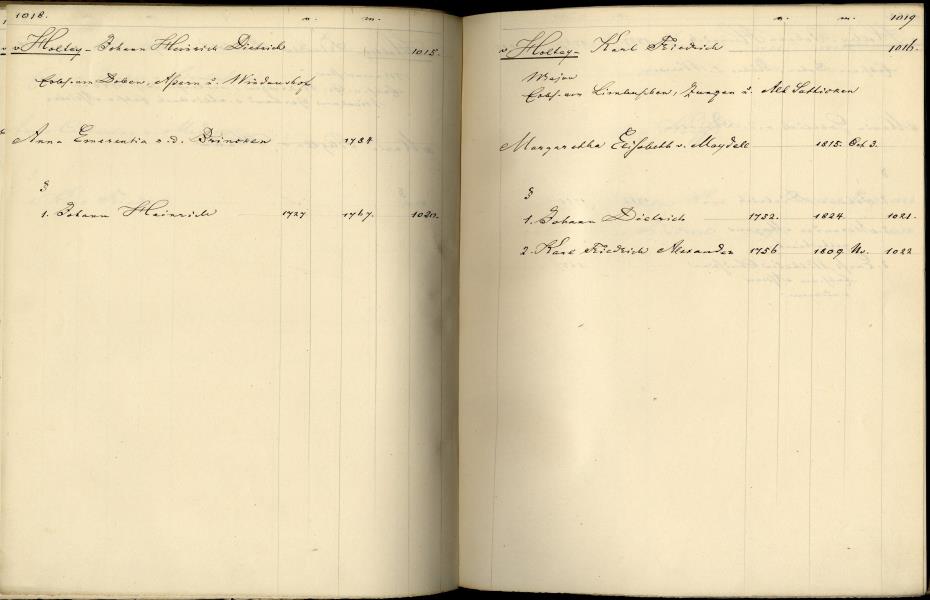 1018. n. m.
v Holtey - Johann Heinrich Dietrich 1015.
Erbh. von Doben, Aspern u. Windaushof
Anna Emerentia v. d. Brincken 1784
§
1. Johann Heinrich 1727 1767. 1020.
n. m. 1019
v Holtey - Karl Friedrich 1016.
Major
Erbh. von u. Alt Sattiken
Margaretha Elisabeth v. Maydell 1815. Oct 3.
§
1. Johann Dietrich 1752. 1824. 1021.
2. Karl Friedrich Alexander 1756 1809 Nv. 1022